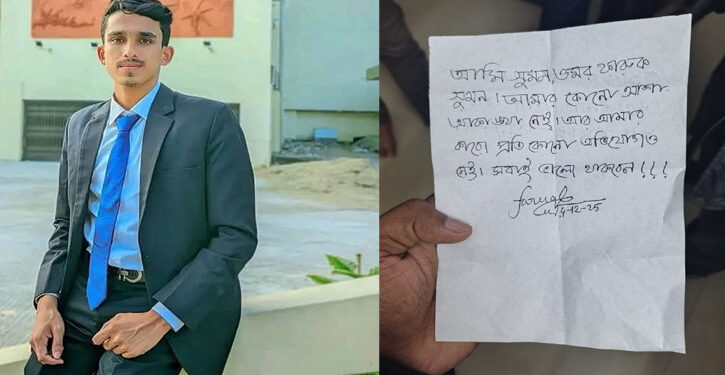 আমি সুমন। ওমর ফারুক
সুমন। আমার কোনো আশা-
আকাঙ্খা নেই। আর আমার
কারো প্রতি কোনো অভিযোগও
নেই। সবাই ভালো থাকবেন!!!
14-12-25